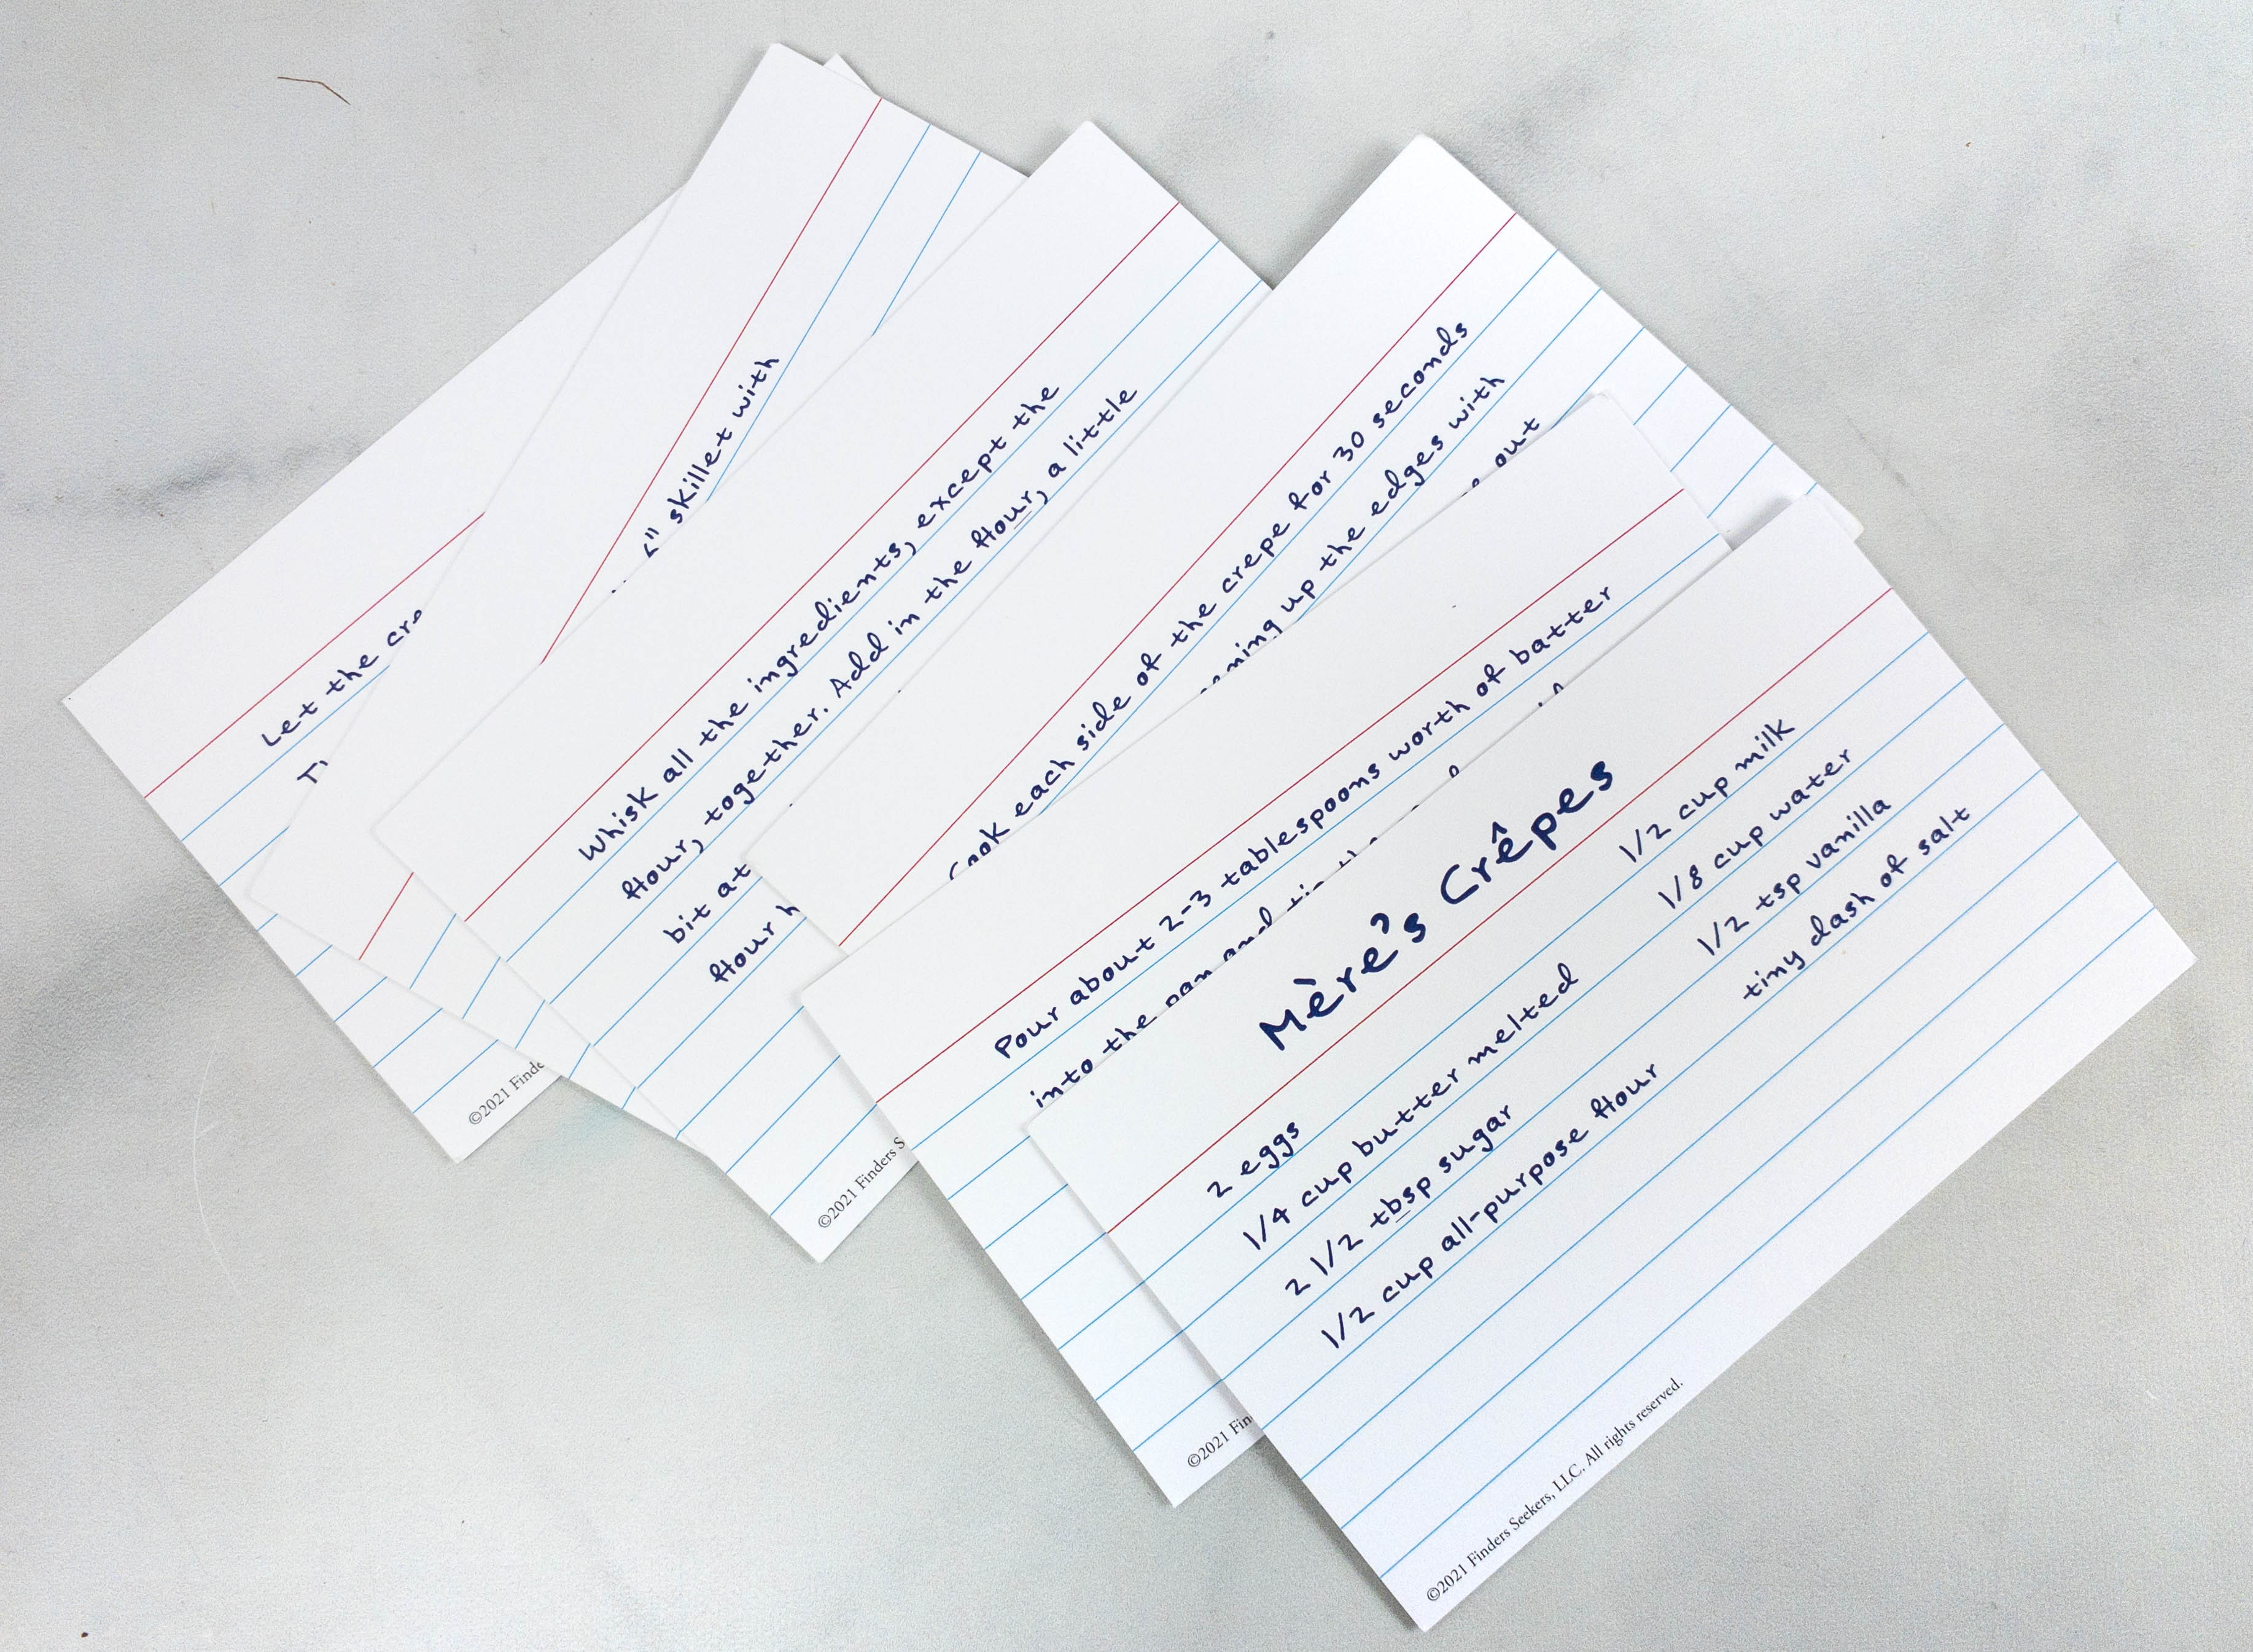 Mère's Crêpes
2 eggs
1/4 cup butter melted
2 1/2 tbsp sugar
1/2 cup all-purpose flour
1/2 cup milk
1/8 cup water
1/2 tsp vanilla
tiny dash of salt
©2021 Finders Seekers, LLC. All rights reserved.
Pour about 2-3 tablespoons worth of batter
into the pan and
©2021
Cook each side of the crepe for 30 seconds
up the edges with
out
Whisk all the ingredients, except the
flour, together. Add in the flour, a little
bit at
flour
©2021 Finders
skillet with
Let the
©2021